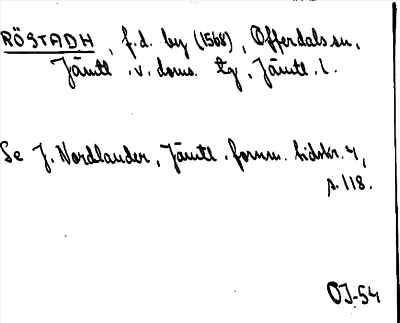 RÖSTADH, f.d. by (1568), Offerdals sn,
Jämtl. v. doms. tg, Jämtl. l.
Se J. Nordlander, Jämtl. fornm. tidskr. 4,
s. 118.
OJ-54